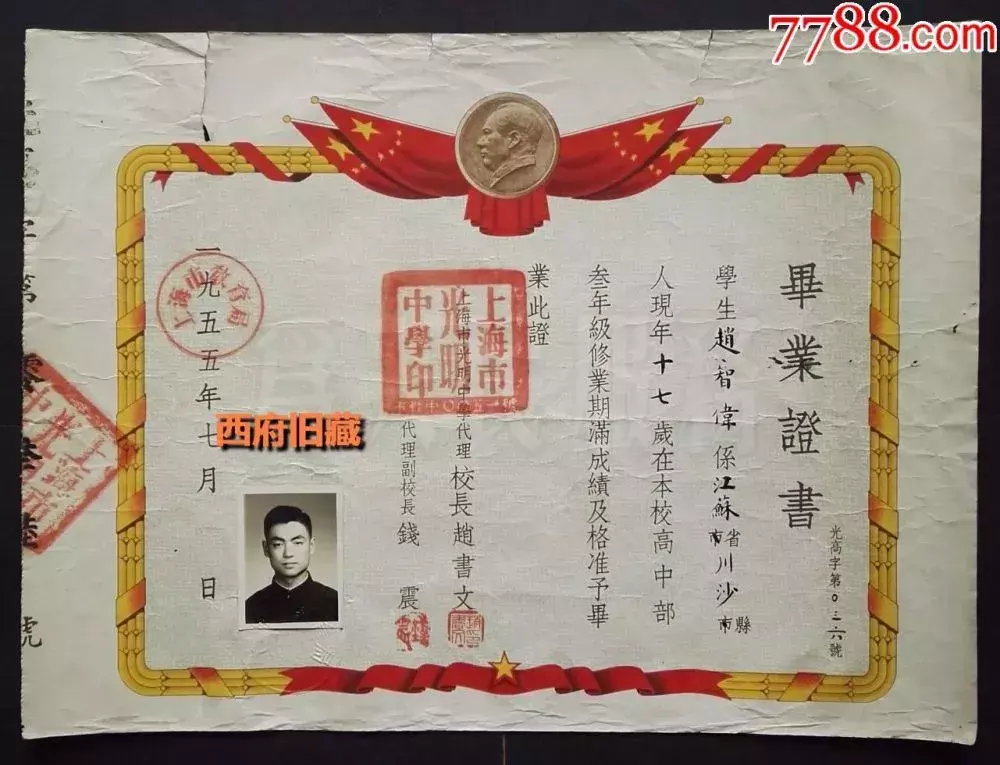 7788.com
畢業證書
光高字第0三二六號
學生趙智偉係江蘇省市川沙縣市
人現年十七歲在本校高中部
叁年級修業期滿成績及格准予畢
業此證
上海市光明中學印
上海市光明中學代理校長趙書文
代理副校長錢震
一九五五年七月 日
上海市教育局
西府旧藏
字第
號